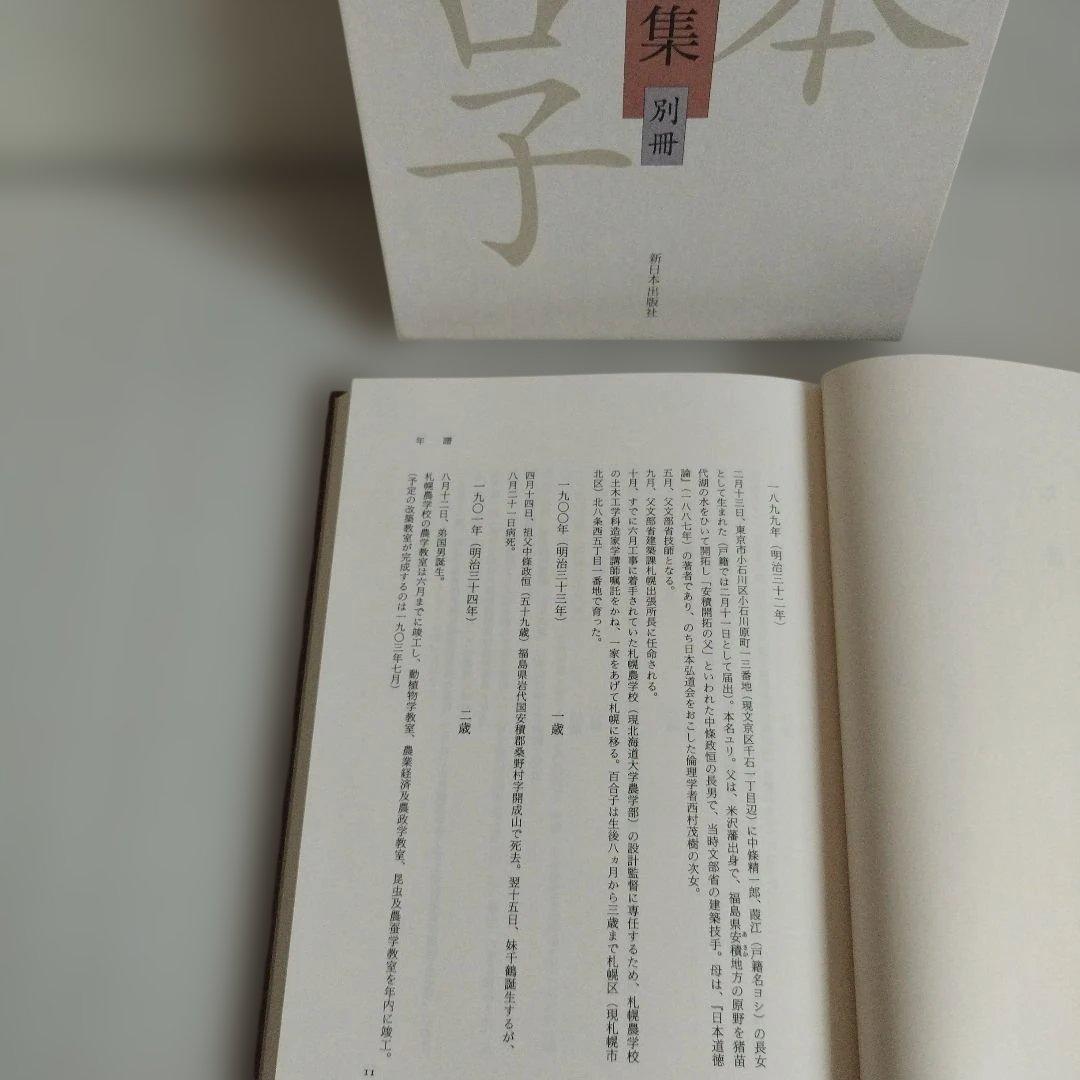 本
合子
集
別冊
新日本出版社
年譜
一八九九年(明治三十二年)
二月十三日、東京市小石川区小石川原町一三番地(現文京区千石一丁目辺)に中條精一郎、葭江(戸籍名ヨシ)の長女
として生まれた(戸籍では二月十一日として届出)。本名ユリ。父は、米沢藩出身で、福島県安積地方の原野を猪苗
あさか
代湖の水をひいて開拓し「安積開拓の父」といわれた中條政恒の長男で、当時文部省の建築技手。母は、『日本道徳
論』(一八八七年)の著者であり、のち日本弘道会をおこした倫理学者西村茂樹の次女。
五月、父文部省技師となる。
九月、父文部省建築課札幌出張所長に任命される。
十月、すでに六月工事に着手されていた札幌農学校(現北海道大学農学部)の設計監督に専任するため、札幌農学校
の土木工学科造家学講師嘱託をかね、一家をあげて札幌に移る。百合子は生後八ヵ月から三歳まで札幌区(現札幌市
北区)北八条西五丁目一番地で育った。
一九〇〇年(明治三十三年) 一歳
四月十四日、祖父中條政恒(五十九歳)福島県岩代国安積郡桑野村字開成山で死去。翌十五日、妹千鶴誕生するが、
八月二十一日病死。
一九〇一年(明治三十四年) 二歳
八月十二日、弟国男誕生。
札幌農学校の農学教室は六月までに竣工し、動植物学教室、農業経済及農政学教室、昆虫及農蚕学教室を年内に竣工。
(予定の改築教室が完成するのは一九〇三年七月)
11